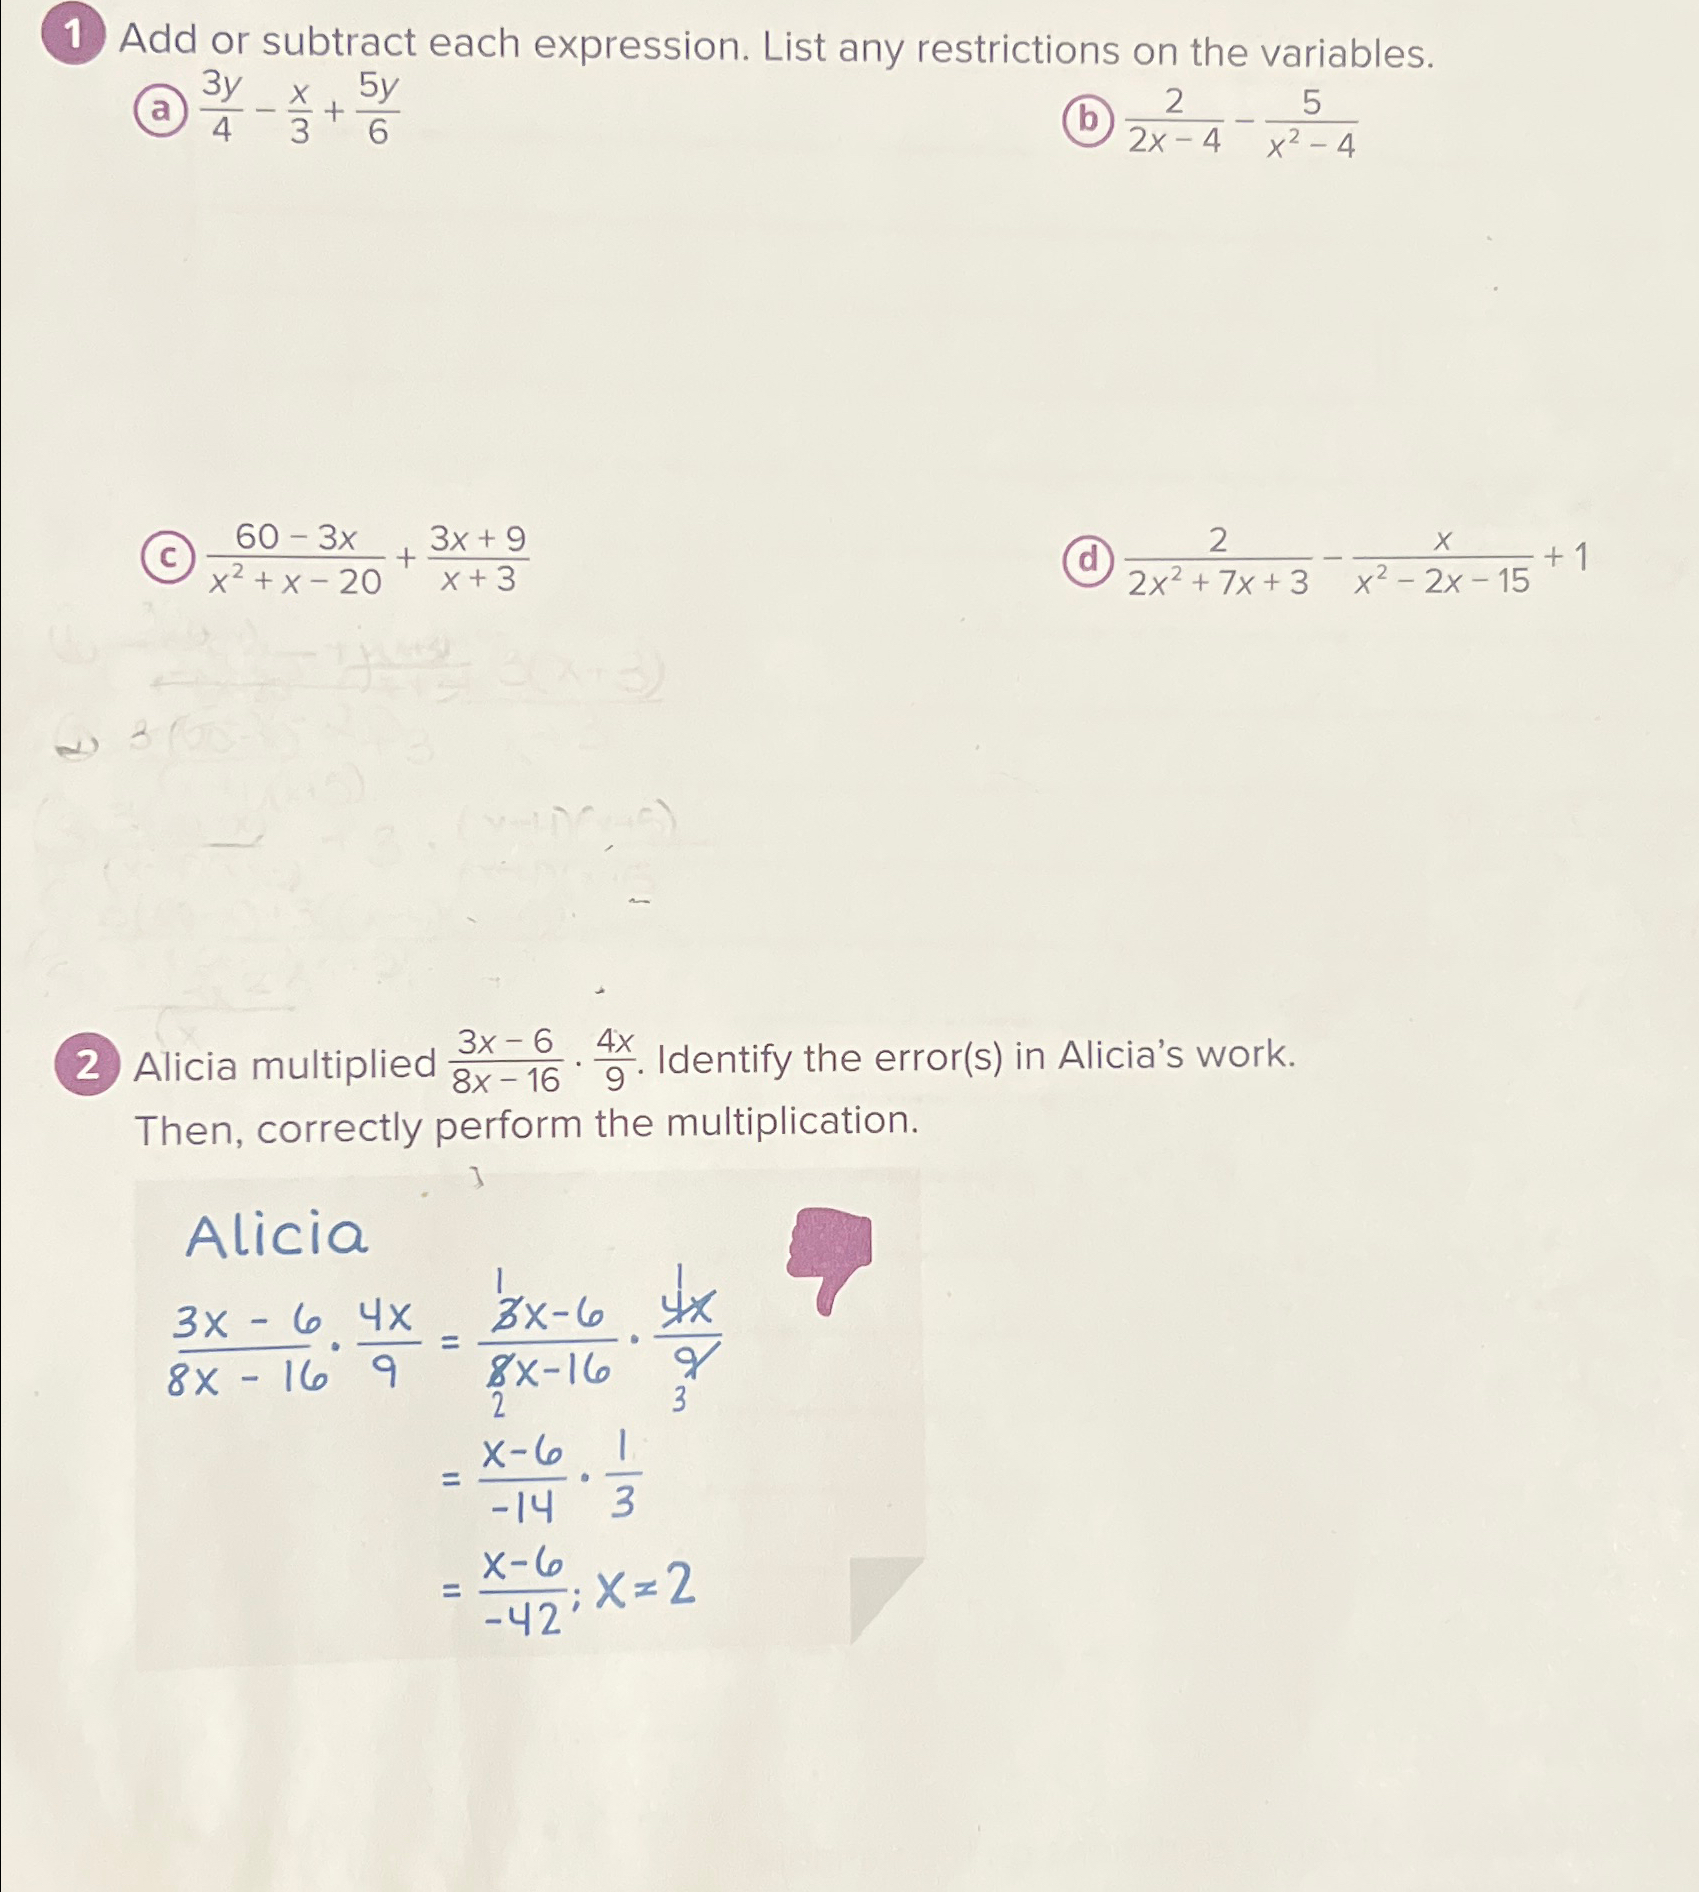 1 Add or subtract each expression. List any restrictions on the variables.
a 3y/4 - x/3 + 5y/6
b 2/(2x - 4) - 5/(x² - 4)
c (60 - 3x)/(x² + x - 20) + (3x + 9)/(x + 3)
d 2/(2x² + 7x + 3) - x/(x² - 2x - 15) + 1
2 Alicia multiplied (3x - 6)/(8x - 16) · 4x/9. Identify the error(s) in Alicia's work.
Then, correctly perform the multiplication.
Alicia
(3x - 6)/(8x - 16) · 4x/9 = (3x - 6)/(8x - 16) · 4x/9
1 1
2 3
= (x - 6)/-14 · 1/3
= (x - 6)/-42; x ≠ 2